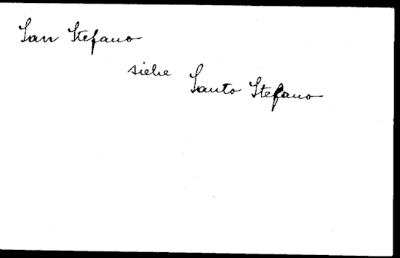 San Stefano
siehe Santo Stefano